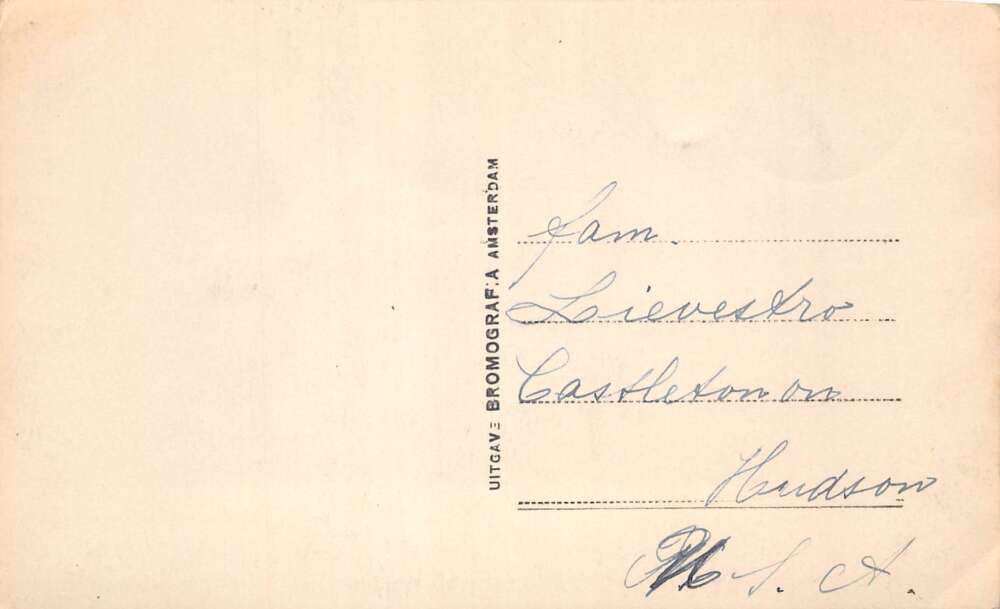 UITGAVE BROMOGRAFIA AMSTERDAM
fam.
Lievestro
Castleton on
Hudson
U. S. A.